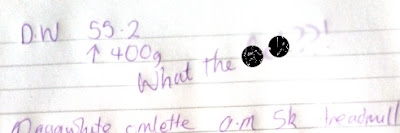 D.W 59.2
↑ 400g
What the ??!
omlette a.m 5k treadmill